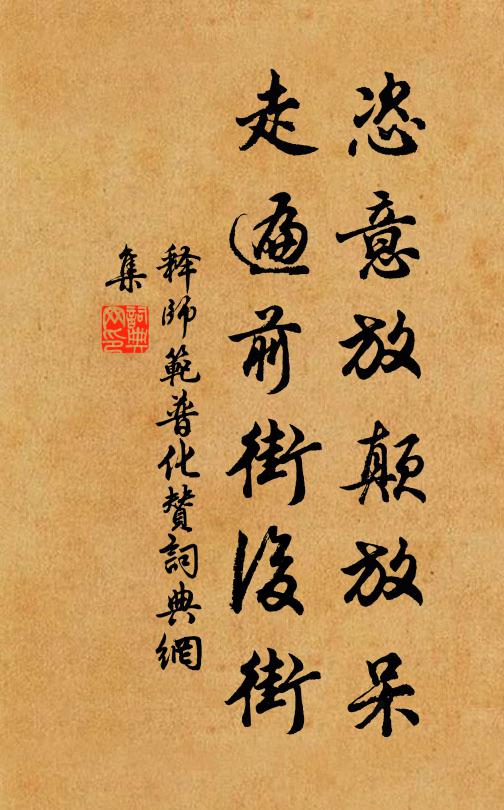 恣意放顛放呆
走遍前街後街
釋師範普化贊詞典網
集
詞典
网印